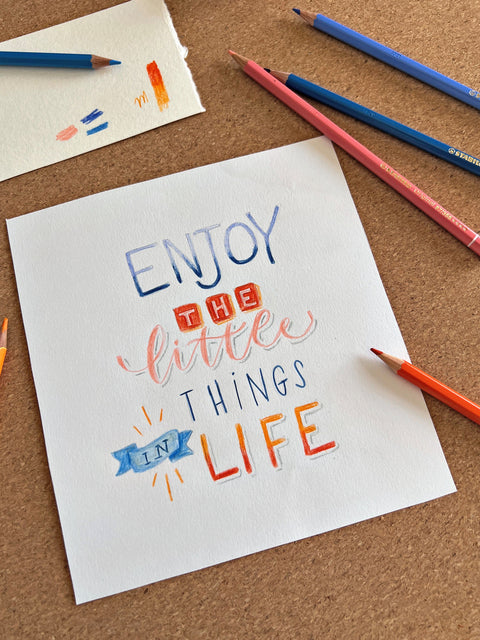 ENJOY
THE
little
THiNGS
IN
LIFE
STABILO